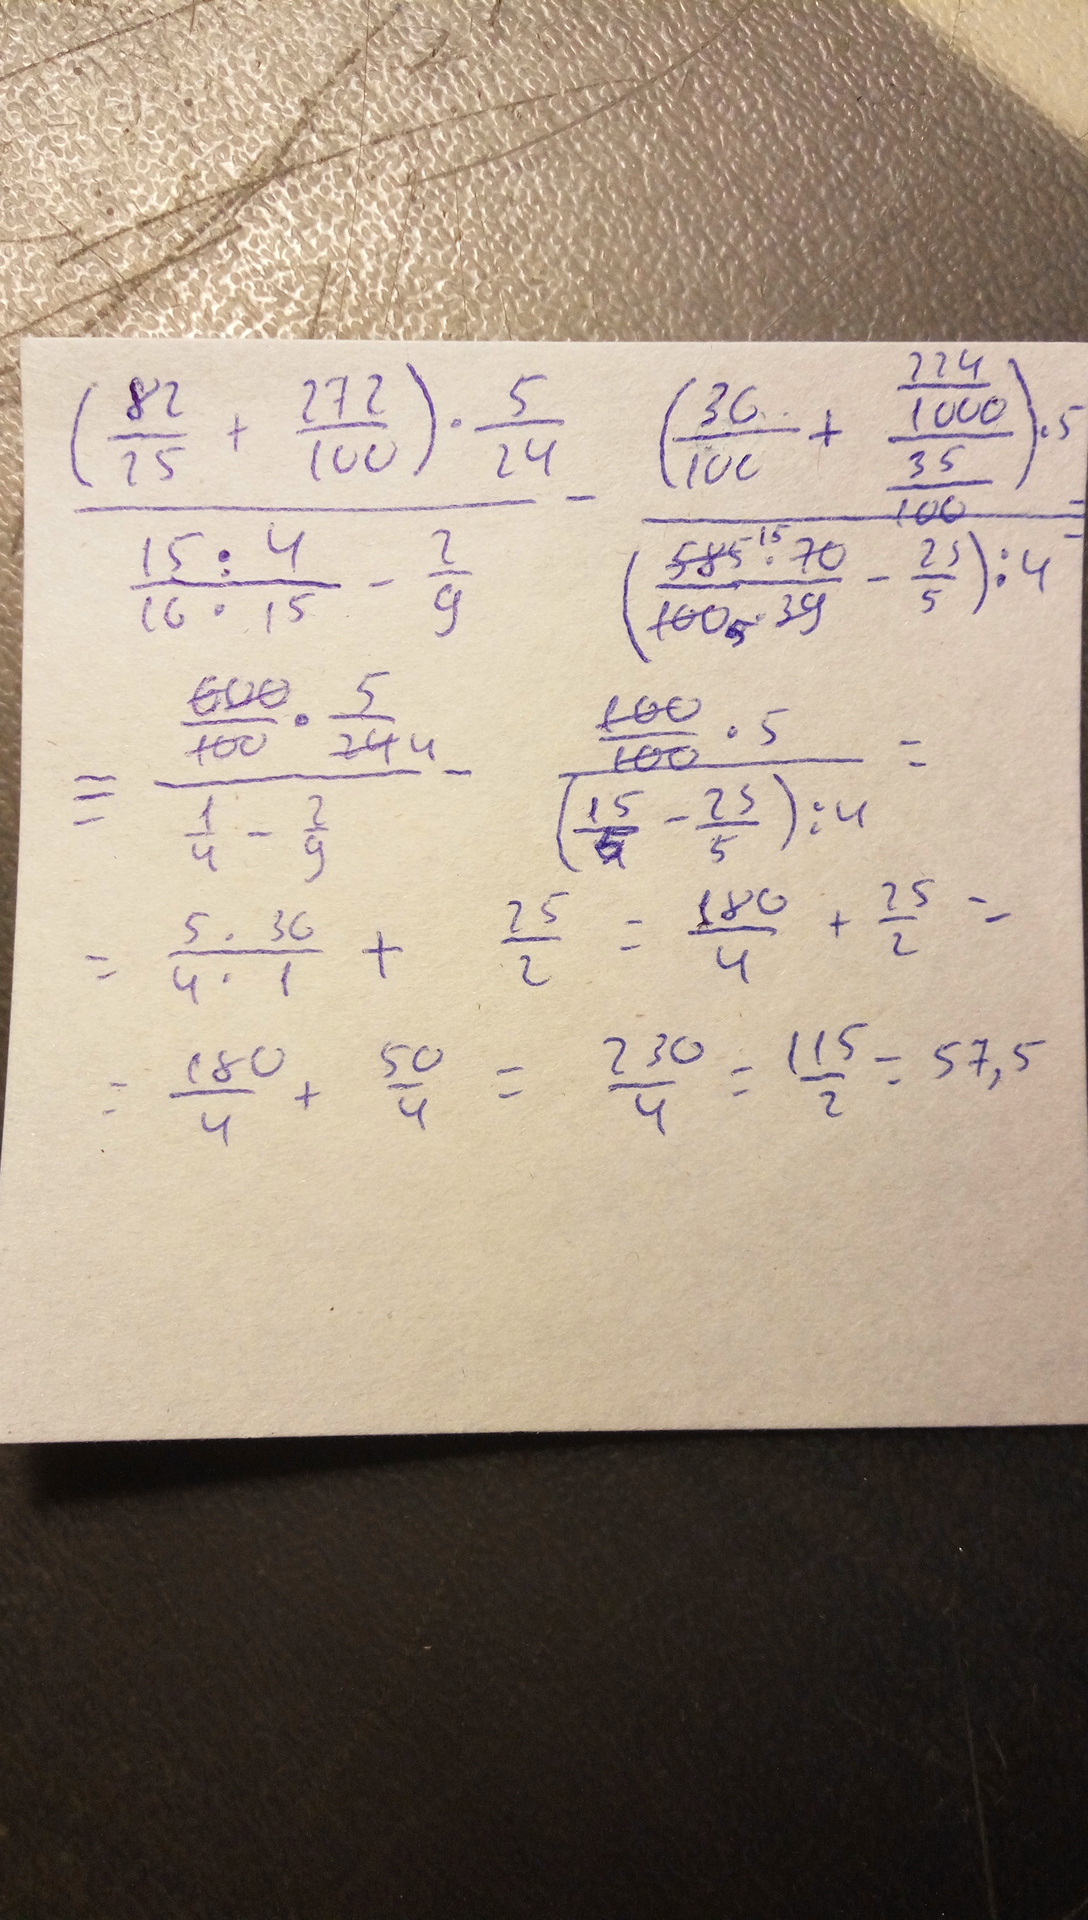 (82/25 + 272/100) · 5/24 / (15 · 4 / 16 · 15 − 2/9) − (36/100 + 224/1000 / 35/100) · 5 / ((585 15 · 70 / 100 5 · 39 − 25/5) : 4) =
= 600/100 · 5/24 4 / (1/4 − 2/9) − 100/100 · 5 / ((15/5 − 25/5) : 4) =
= 5 · 36 / 4 · 1 + 25/2 = 180/4 + 25/2 =
= 180/4 + 50/4 = 230/4 = 115/2 = 57,5